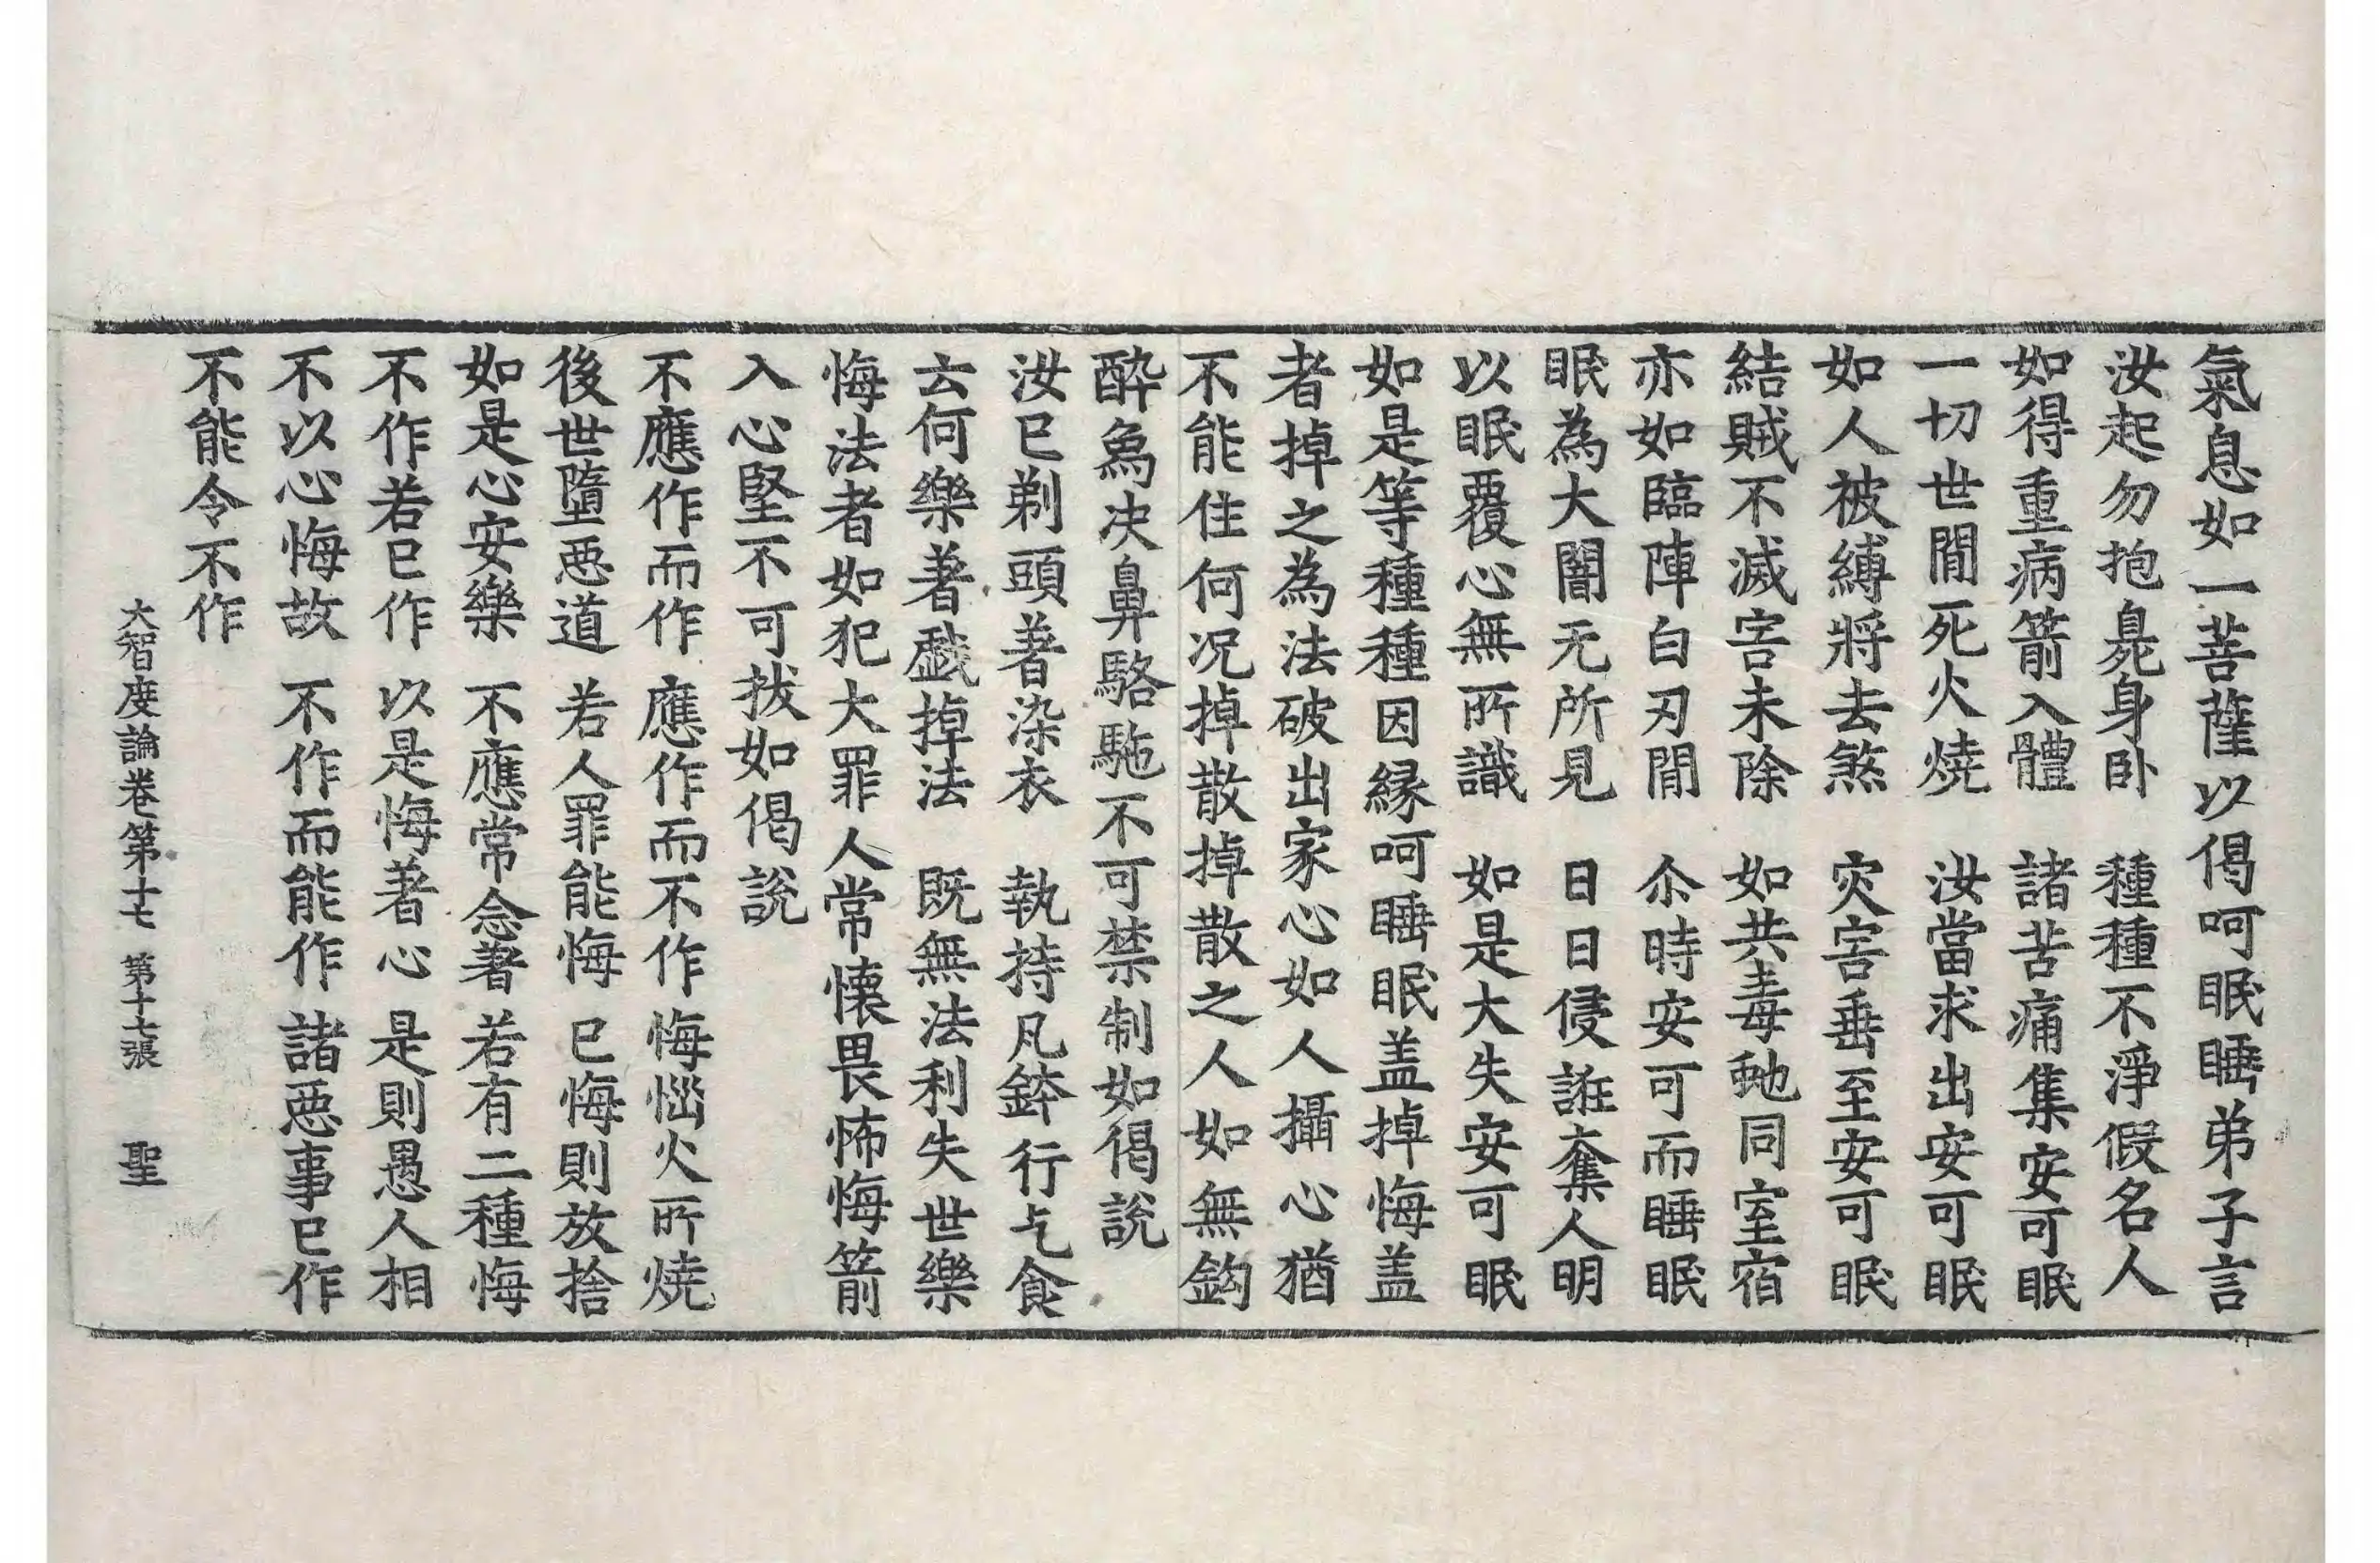 氣息如一菩薩以偈呵眠睡弟子言
汝起勿抱臭身卧　種種不淨假名人
如得重病箭入體　諸苦痛集安可眠
一切世間死火燒　汝當求出安可眠
如人被縛將去煞　灾害垂至安可眠
結賊不滅害未除　如共毒虵同室宿
亦如臨陣白刃間　尒時安可而睡眠
眠為大闇无所見　日日侵誑奪人明
以眠覆心無所識　如是大失安可眠
如是等種種因縁呵睡眠盖掉悔盖
者掉之為法破出家心如人攝心猶
不能住何况掉散掉散之人如無鈎
醉象决鼻駱駞不可禁制如偈說
汝已剃頭著染衣　執持凡鉢行乞食
云何樂著戱掉法　既無法利失世樂
悔法者如犯大罪人常懷畏怖悔箭
入心堅不可拔如偈說
不應作而作　應作而不作　悔惱火所燒
後世墮惡道　若人罪能悔　已悔則放捨
如是心安樂　不應常念著　若有二種悔
不作若已作　以是悔著心　是則愚人相
不以心悔故　不作而能作　諸惡事已作
不能令不作
大智度論卷第十七　第十七張　聖